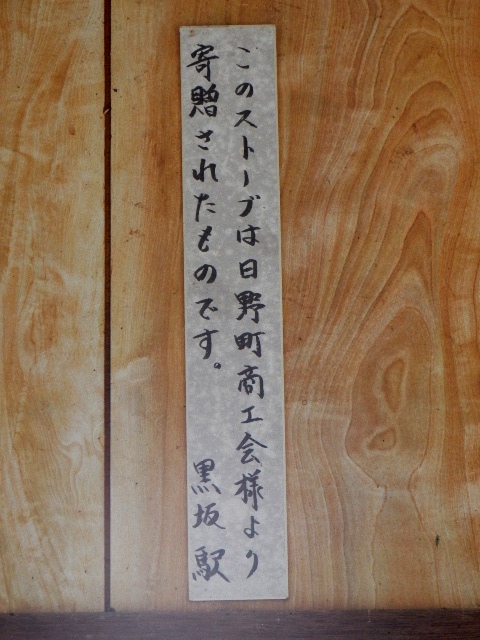 このストーブは日野町商工会様より
寄贈されたものです。 黒坂駅